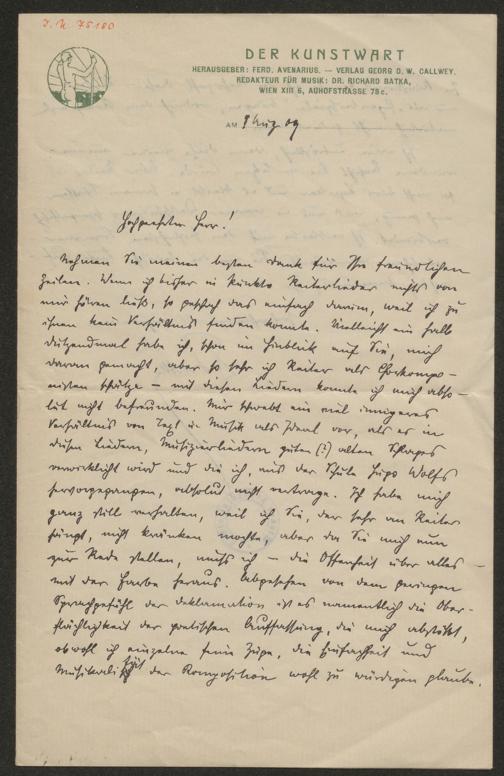 I. N. 75180
DER KUNSTWART
HERAUSGEBER: FERD. AVENARIUS. — VERLAG GEORG D. W. CALLWEY.
REDAKTEUR FÜR MUSIK: DR. RICHARD BATKA,
WIEN XIII 6, AUHOFSTRASSE 78c.
AM 9 Aug 09
Hochgeehrter Herr!
Nehmen Sie meinen besten Dank für Ihre freundlichen
Zeilen. Wenn ich bisher in Reiterlieder nichts von
mir hören ließ, so geschah das einfach darum, weil ich zu
ihnen kein Verhältnis finden konnte. Vielleicht ein halb
dutzendmal habe ich, schon im Hinblick auf Sie, mich
daran gemacht, aber so sehr ich Reiter als Chorkompo-
nisten schätze – mit diesen Liedern konnte ich mich abso-
lut nicht befreunden. Mir schwebt ein viel innigeres
Verhältnis von Text u. Musik als Ideal vor, als es in
diesen Liedern, Musizierliedern guten (?) alten Schlages
verwirklicht wird und die ich, aus der Schule Hugo Wolfs
hervorgegangen, absolut nicht vertrage. Ich habe mich
ganz still verhalten, weil ich Sie, der sehr an Reiter
hängt, nicht kränken mochte, aber da Sie mich nun
zur Rede stellen, muß ich – die Offenheit über alles –
mit der Farbe heraus. Abgesehen von dem geringen
Sprachgefühl der Deklamation ist es namentlich die Ober-
flächligkeit der poetischen Auffassung, die mich abstößt,
obwohl ich einzelne feine Züge, die Einfachheit und
der Komposition wohl zu würdigen glaube.